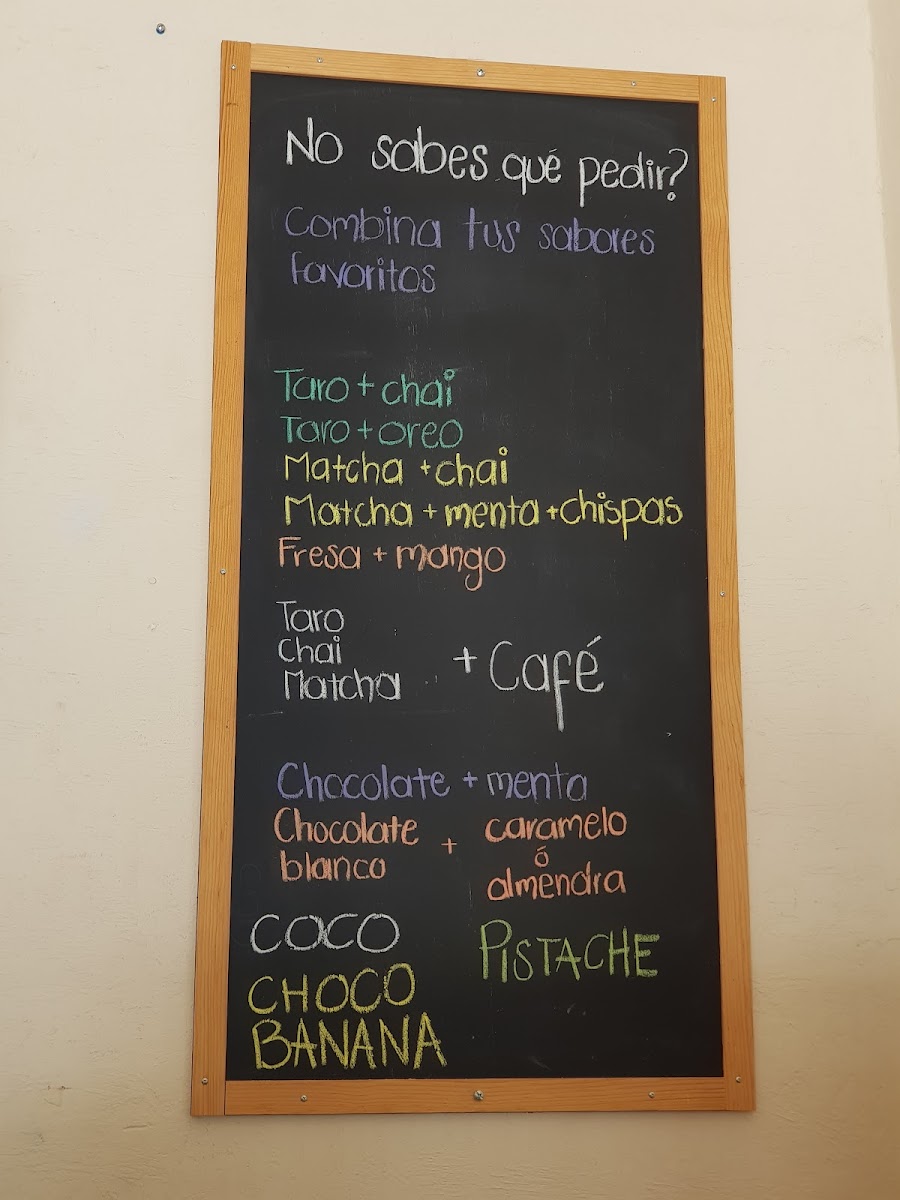 No sabes qué pedir?
Combina tus sabores
Favoritos
Taro + chai
Taro + oreo
Matcha + chai
Matcha + menta + chispas
Fresa + mango
Taro
Chai
Matcha
+ Café
Chocolate + menta
Chocolate
blanco
+
caramelo
ó
almendra
COCO
PISTACHE
CHOCO
BANANA